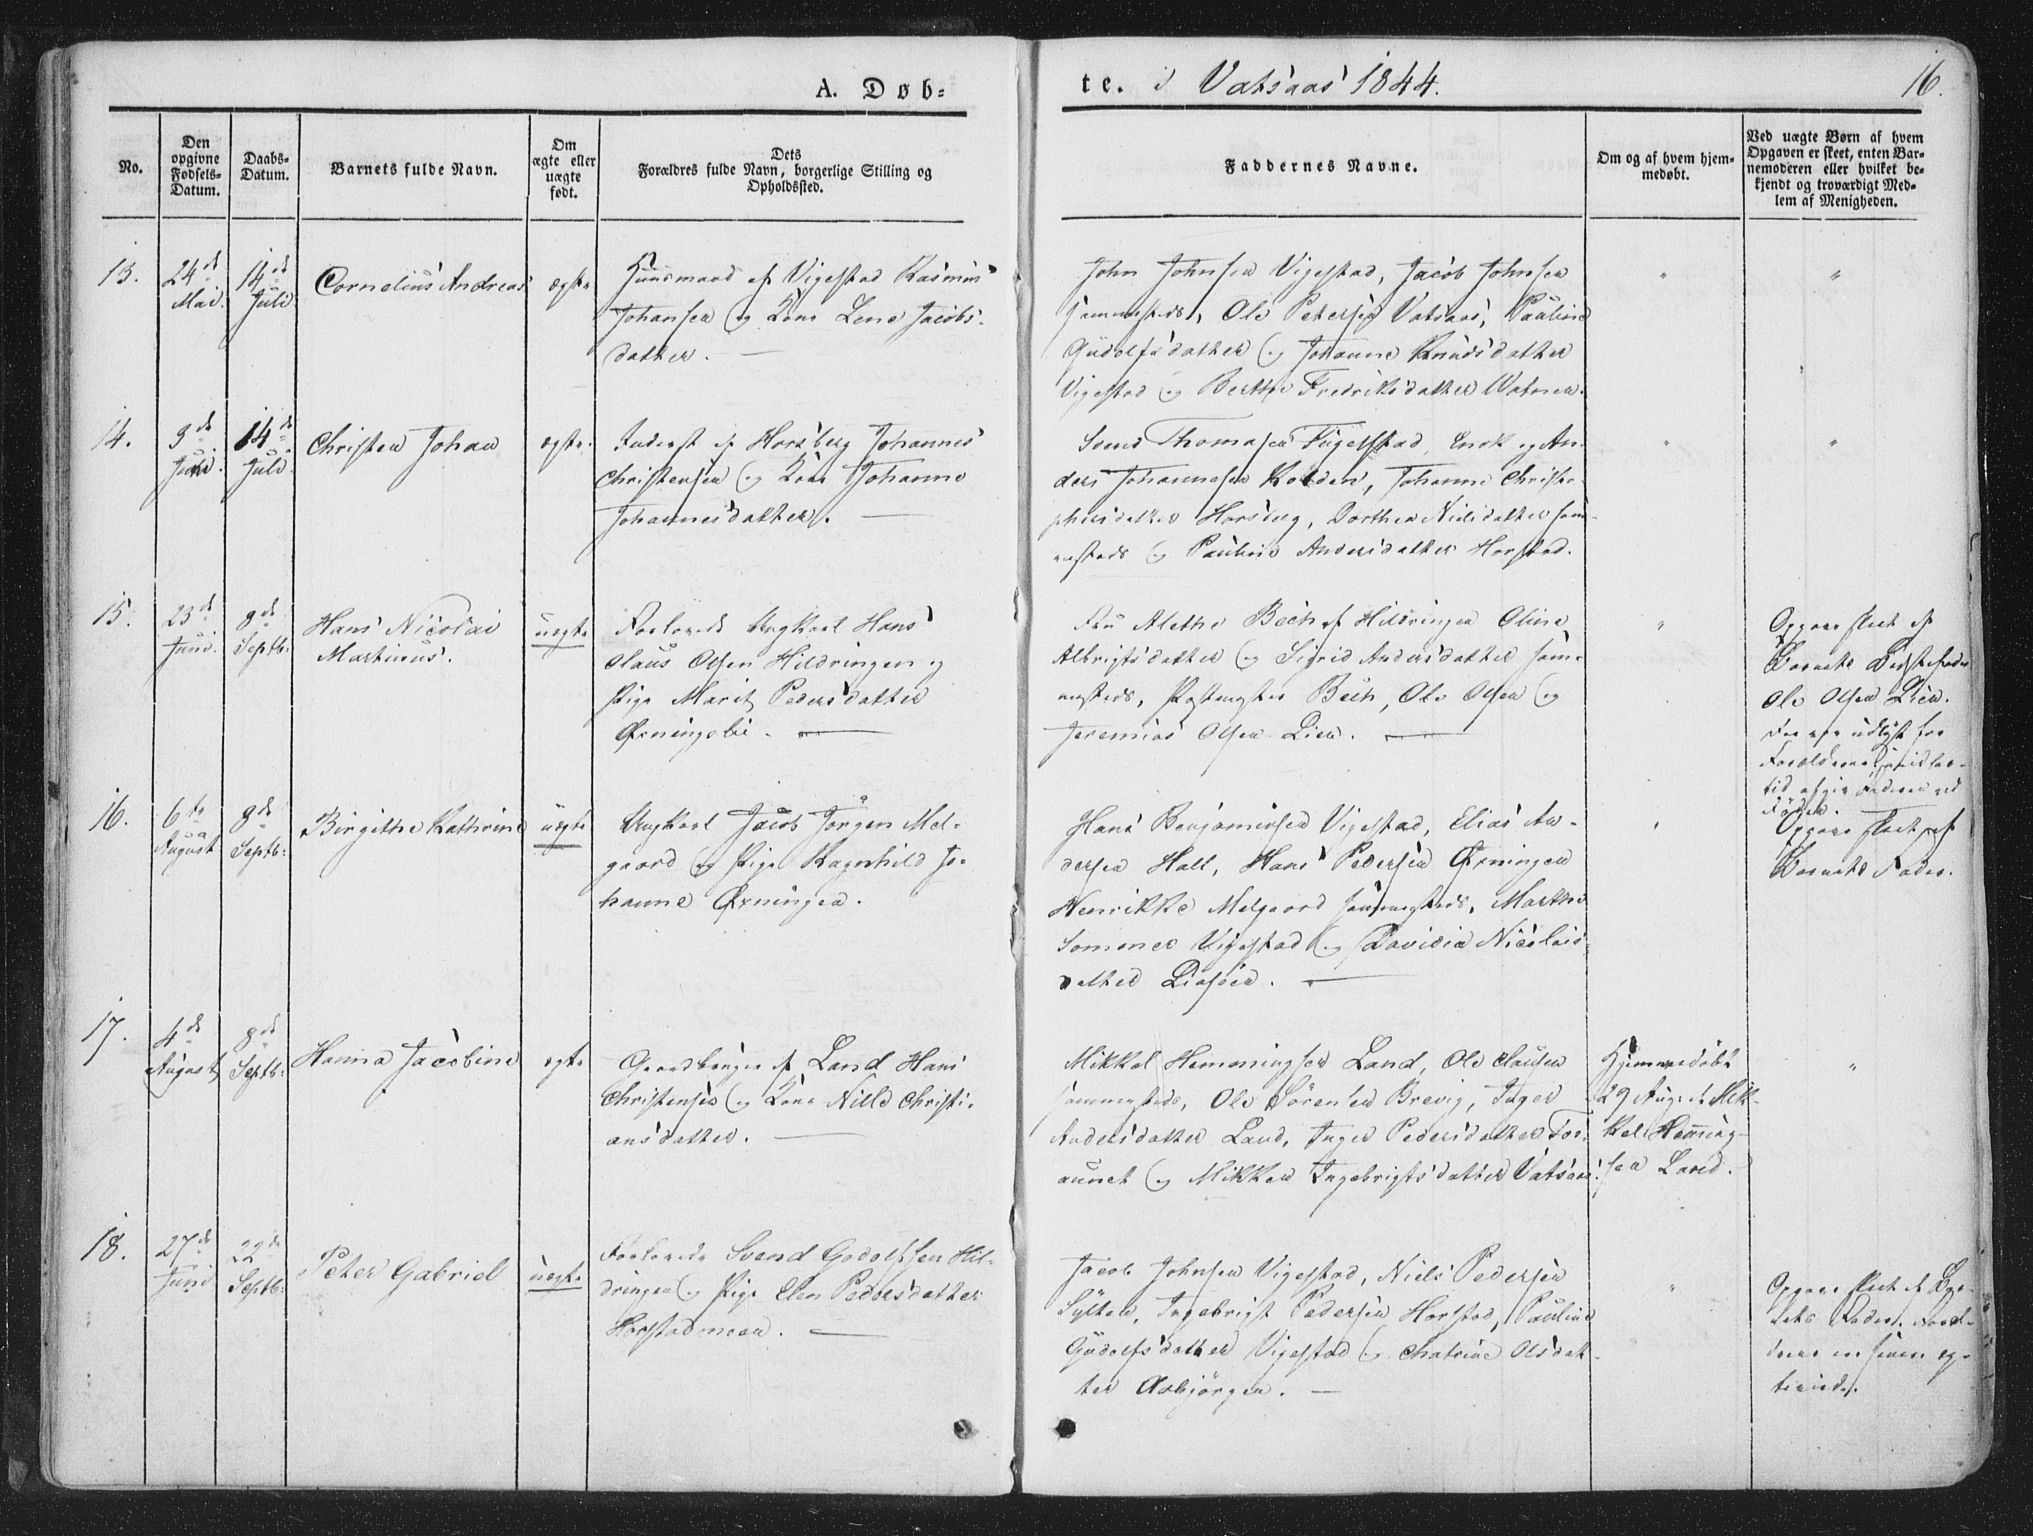 A. Døb=
te. i Vatsaas 1844.
16.
No.
Den opgivne Fødsels-Datum.
Daabs-Datum.
Barnets fulde Navn.
Om ægte eller uægte født.
Dets Forældres fulde Navn, borgerlige Stilling og Opholdssted.
Faddernes Navne.
Om og af hvem hjem-medøbt.
Ved uægte Børn af hvem Opgaven er skeet, enten Bar-nemoderen eller hvilket be-kjendt og troværdigt Med-lem af Menigheden.
13.
24de
Mai.
14de
Juli
Cornelius Andreas
ægte
Huusmand af Vigestad Rasmus
Johansen og Kone Lene Jacobs-
datter.
John Johnsen Vigestad, Jacob Johnsen
sammesteds, Ole Petersen Vatsaas, Pauline
Gudolfsdatter og Johanne Knudsdatter
Vigestad og Berthe Fredriksdatter
"
"
14.
3de
14de
Juli
Christen Johan
ægte.
Inderst af Horsberg Johannes
Christensen og Kone Johanne
Johannesdatter.
Svend Thomasen Enok og An-
ders Johannesen Kolden, Johanne Christo-
phersdatter Horsberg, Dorthea Nielsdatter sam-
mesteds og Pauline Andersdatter Horstad.
"
"
15.
23de
Juni.
8de
Septb:
Hans Nicolai
Martinus.
uægte
Forlovede Ungkarl Hans
Olaus Olsen Hildringen og
Pige Marit Pedersdatter
Øxningslie.
Fru Alethe Bech af Hildringen Oline
Albrigtsdatter og Sigrid Andersdatter sam-
mesteds, Bech, Ole Olsen og
Jeremias Olsen Lien.
"
Opgave skeet af
Barnets Bedstefader
Ole Olsen Lien.
16.
6te
August
8de
Septb:
Birgithe Kathrine
uægte
Ungkarl Jacob Jørgen Mel-
gaard og Pige Ragnhild Jo-
hanne Øxningen.
Hans Benjaminsen Vigestad, Elias An-
dersen Hall, Hans Pedersen Øxningen
Henrikke Melgaard sammesteds, Marthe
Sommer Vigestad og Davidia Nicolais-
datter
Opgave skeet af
Barnets Fader.
17.
4de
August
8de
Septb:
Hanna Jacobine
ægte
Gaardbruger af Land Hans
Christensen og Kone Nille Christi-
ansdatter.
Mikkel Hemmingsen Land, Ole Clausen
sammesteds, Ole Sørensen Brevig, Inger
Andersdatter Land, Inger Pedersdatter For-
aunet og Mikken Ingebrigtsdatter Vatsaas.
Hjemmedøbt
29 Aug. af Mik-
kel Heming-
sen Land.
"
18.
27de
Juni
22de
Septb:
Peter Gabriel
uægte
Forlovede Svend Godolfsen Hil-
dringen og Pige Elen Pedersdatter
Horstadmoen.
Jacob Johnsen Vigestad, Niels Pedersen
Sylten, Ingebrigt Pedersen Horstad, Pauline
Gudolfsdatter Vigestad og Chatrine Olsdat-
ter Aabjørgen.
"
Opgave skeet af Bar-
nets Fader. Foræl-